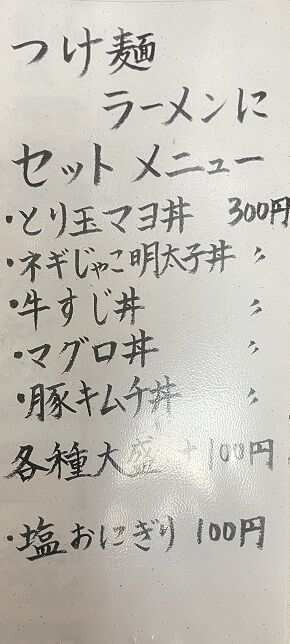 つけ麺
ラーメンに
セットメニュー
・とり玉マヨ丼 300円
・ネギじゃこ明太子丼 〃
・牛すじ丼 〃
・マグロ丼 〃
・豚キムチ丼 〃
各種大盛 +100円
・塩おにぎり 100円